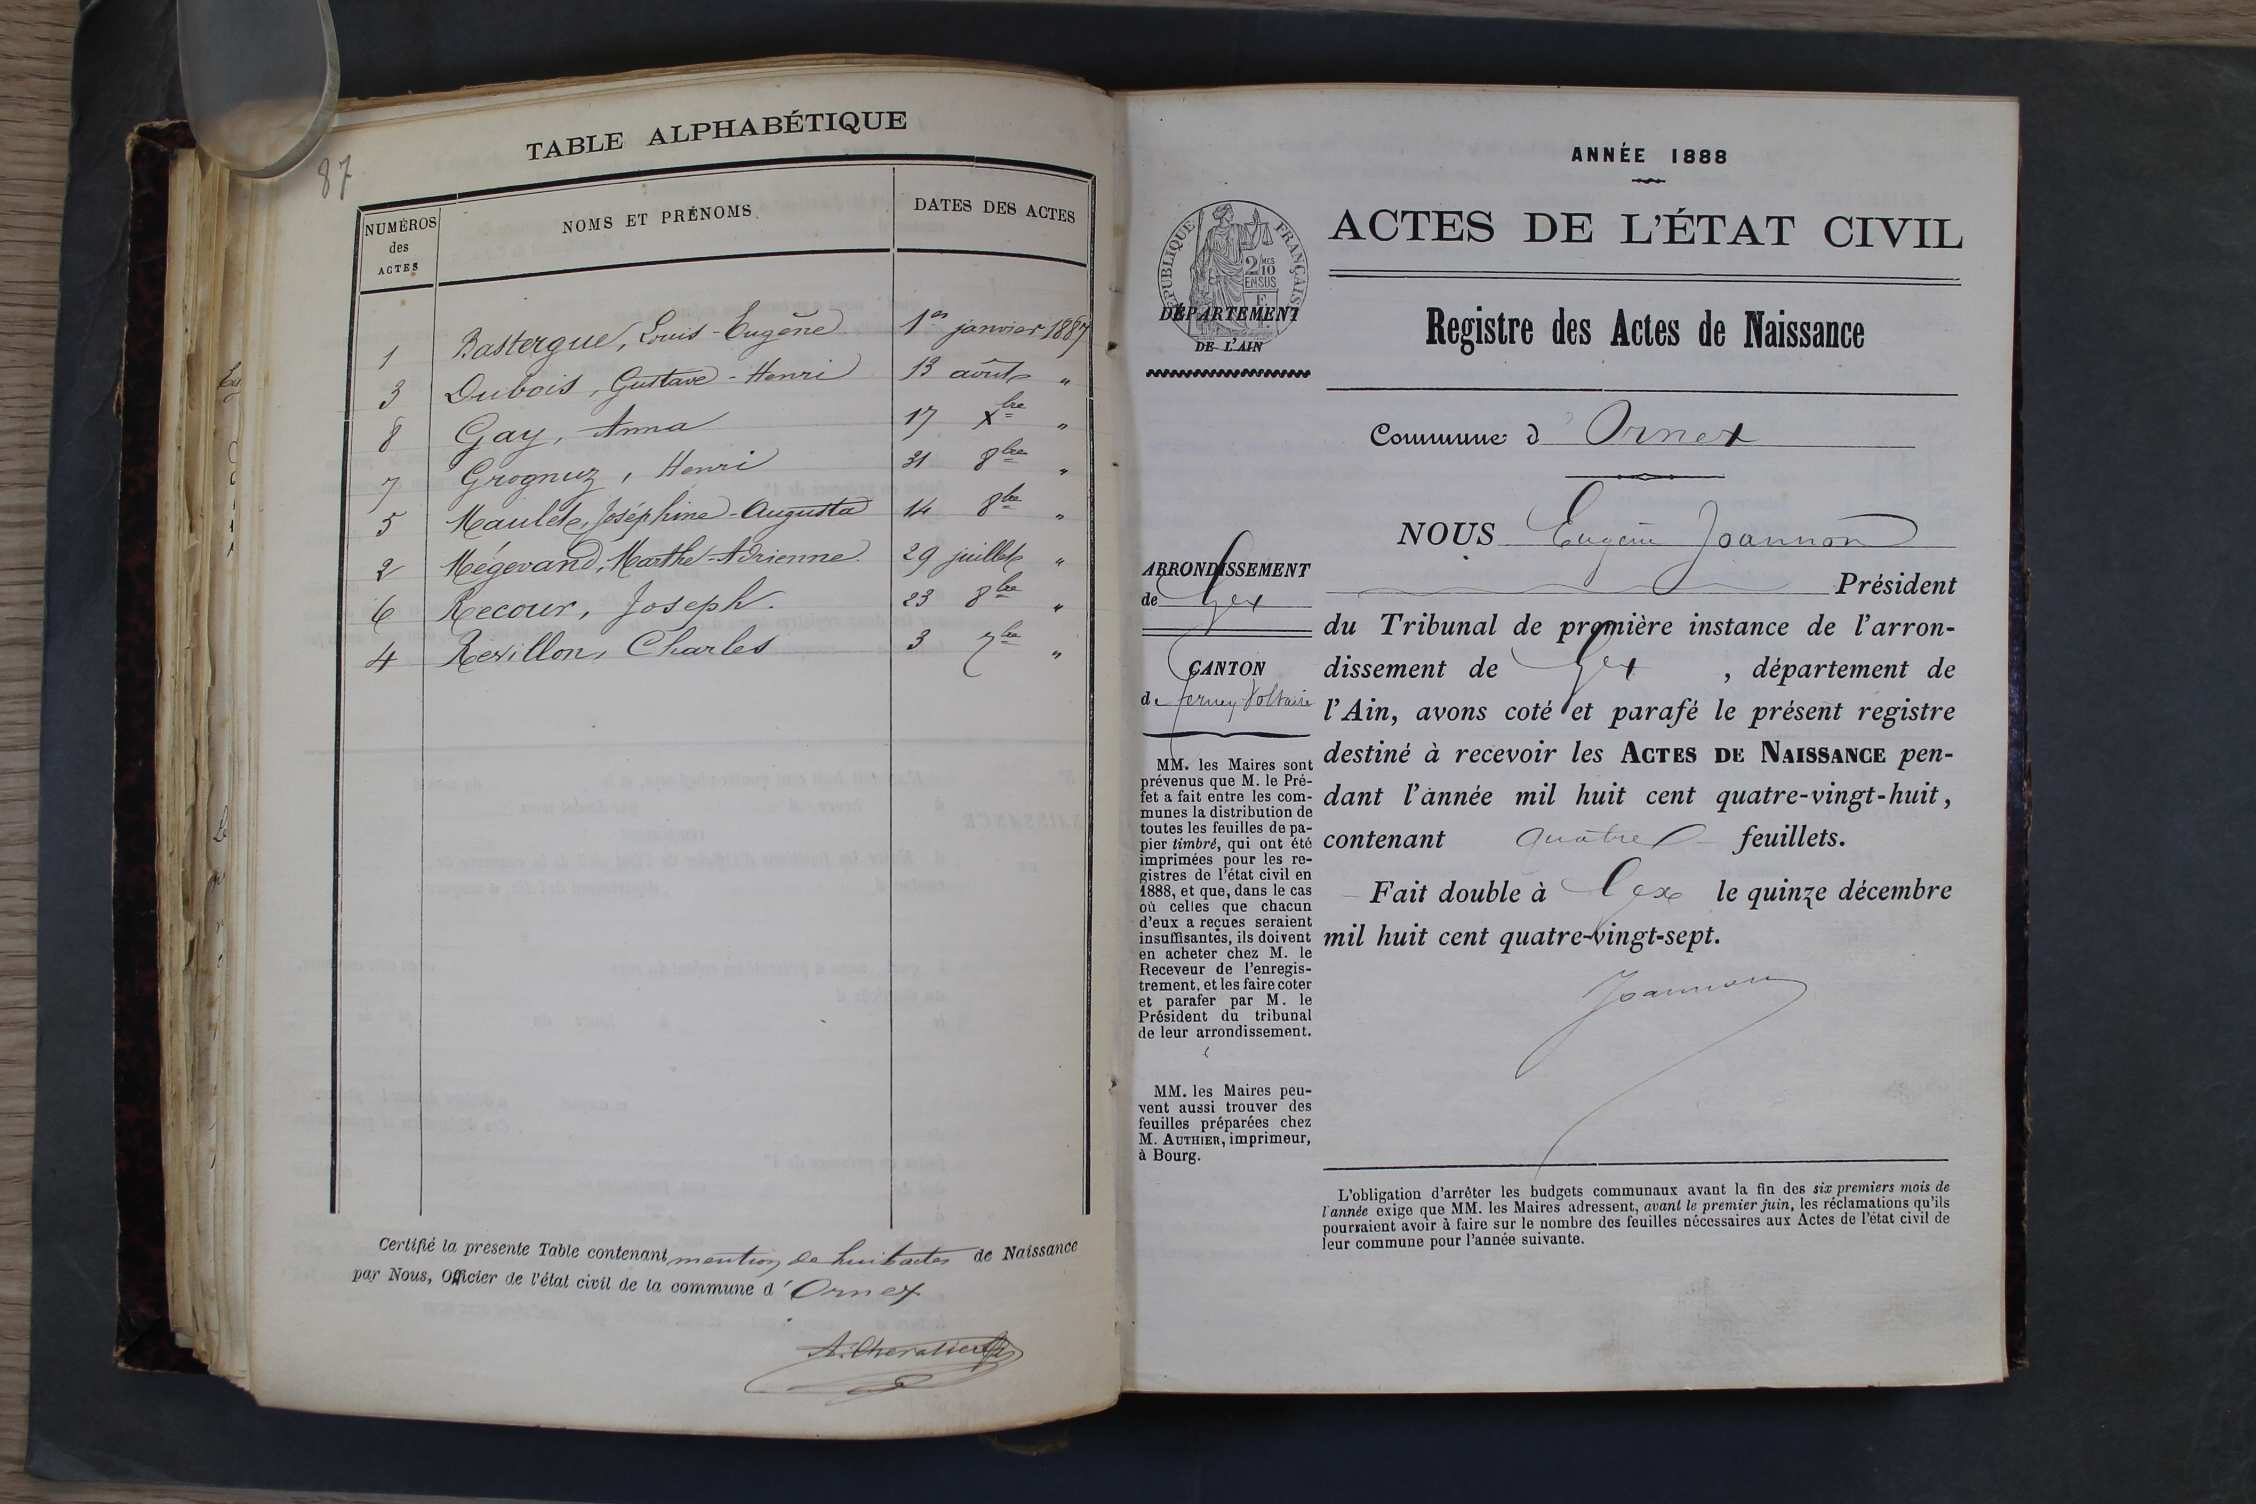 87
TABLE ALPHABÉTIQUE
NUMÉROS des ACTES
NOMS ET PRÉNOMS
DATES DES ACTES
1 Bastergue, Louis-Eugène 1er janvier 1887
3 Dubois, Gustave-Henri 13 août "
8 Gay, Anna 17 Xbre "
7 Grognuz, Henri 31 8bre "
5 Maulet, Joséphine-Augusta 14 8bre "
2 Mégevand, Marthe-Adrienne 29 juillet "
6 Recour, Joseph. 23 8bre "
4 Revillon, Charles 3 7bre "
Certifié la présente Table contenant mention de huit actes de Naissance
par Nous, Officier de l'état civil de la commune d'Ornex
A. Chevalier
ANNÉE 1888
RÉPUBLIQUE FRANÇAISE
2/10 MES
EN SUS
DÉPARTEMENT
DE L'AIN
ACTES DE L'ÉTAT CIVIL
Registre des Actes de Naissance
Commune d'Ornex
ARRONDISSEMENT
de Gex
CANTON
de Ferney-Voltaire
MM. les Maires sont
prévenus que M. le Pré-
fet a fait entre les com-
munes la distribution de
toutes les feuilles de pa-
pier timbré, qui ont été
imprimées pour les re-
gistres de l'état civil en
1888, et que, dans le cas
où celles que chacun
d'eux a reçues seraient
insuffisantes, ils doivent
en acheter chez M. le
Receveur de l'enregis-
trement, et les faire coter
et parafer par M. le
Président du tribunal
de leur arrondissement.
MM. les Maires peu-
vent aussi trouver des
feuilles préparées chez
M. AUTHIER, imprimeur,
à Bourg.
NOUS Eugène Joannon
Président
du Tribunal de première instance de l'arron-
dissement de Gex, département de
l'Ain, avons coté et parafé le présent registre
destiné à recevoir les ACTES DE NAISSANCE pen-
dant l'année mil huit cent quatre-vingt-huit,
contenant quatre feuillets.
Fait double à Gex le quinze décembre
mil huit cent quatre-vingt-sept.
Joannon
L'obligation d'arrêter les budgets communaux avant la fin des six premiers mois de
l'année exige que MM. les Maires adressent, avant le premier juin, les réclamations qu'ils
pourraient avoir à faire sur le nombre des feuilles nécessaires aux Actes de l'état civil de
leur commune pour l'année suivante.